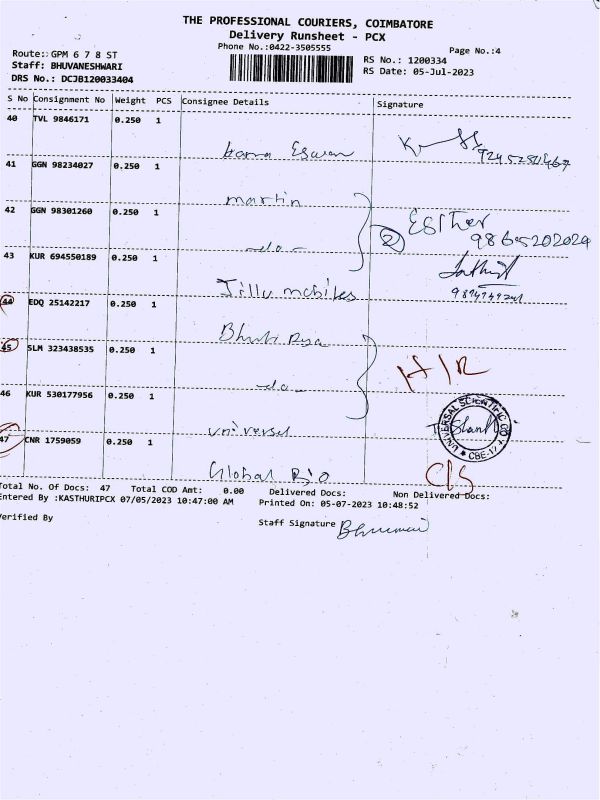 THE PROFESSIONAL COURIERS, COIMBATORE
Delivery Runsheet - PCX
Phone No.:0422-3505555
Page No.:4
Route: GPM 6 7 8 ST
Staff: BHUVANESHWARI
DRS No.: DCJB120033404
RS No.: 1200334
RS Date: 05-Jul-2023
S No Consignment No Weight PCS Consignee Details Signature
40 TVL 9846171 0.250 1
41 GGN 98234027 0.250 1
martin
42 GGN 98301260 0.250 1
-do-
2 Esther
9865202029
43 KUR 694550189 0.250 1
Jillu mobiles
44 EDQ 25142217 0.250 1
45 SLM 323438535 0.250 1
-do-
46 KUR 530177956 0.250 1
universal
UNIVERSAL SCIENTIFIC CO
CBE-17
47 CNR 1759059 0.250 1
Global Bio
Total No. Of Docs: 47 Total COD Amt: 0.00 Delivered Docs: Non Delivered Docs:
Entered By :KASTHURIPCX 07/05/2023 10:47:00 AM Printed On: 05-07-2023 10:48:52
Verified By
Staff Signature